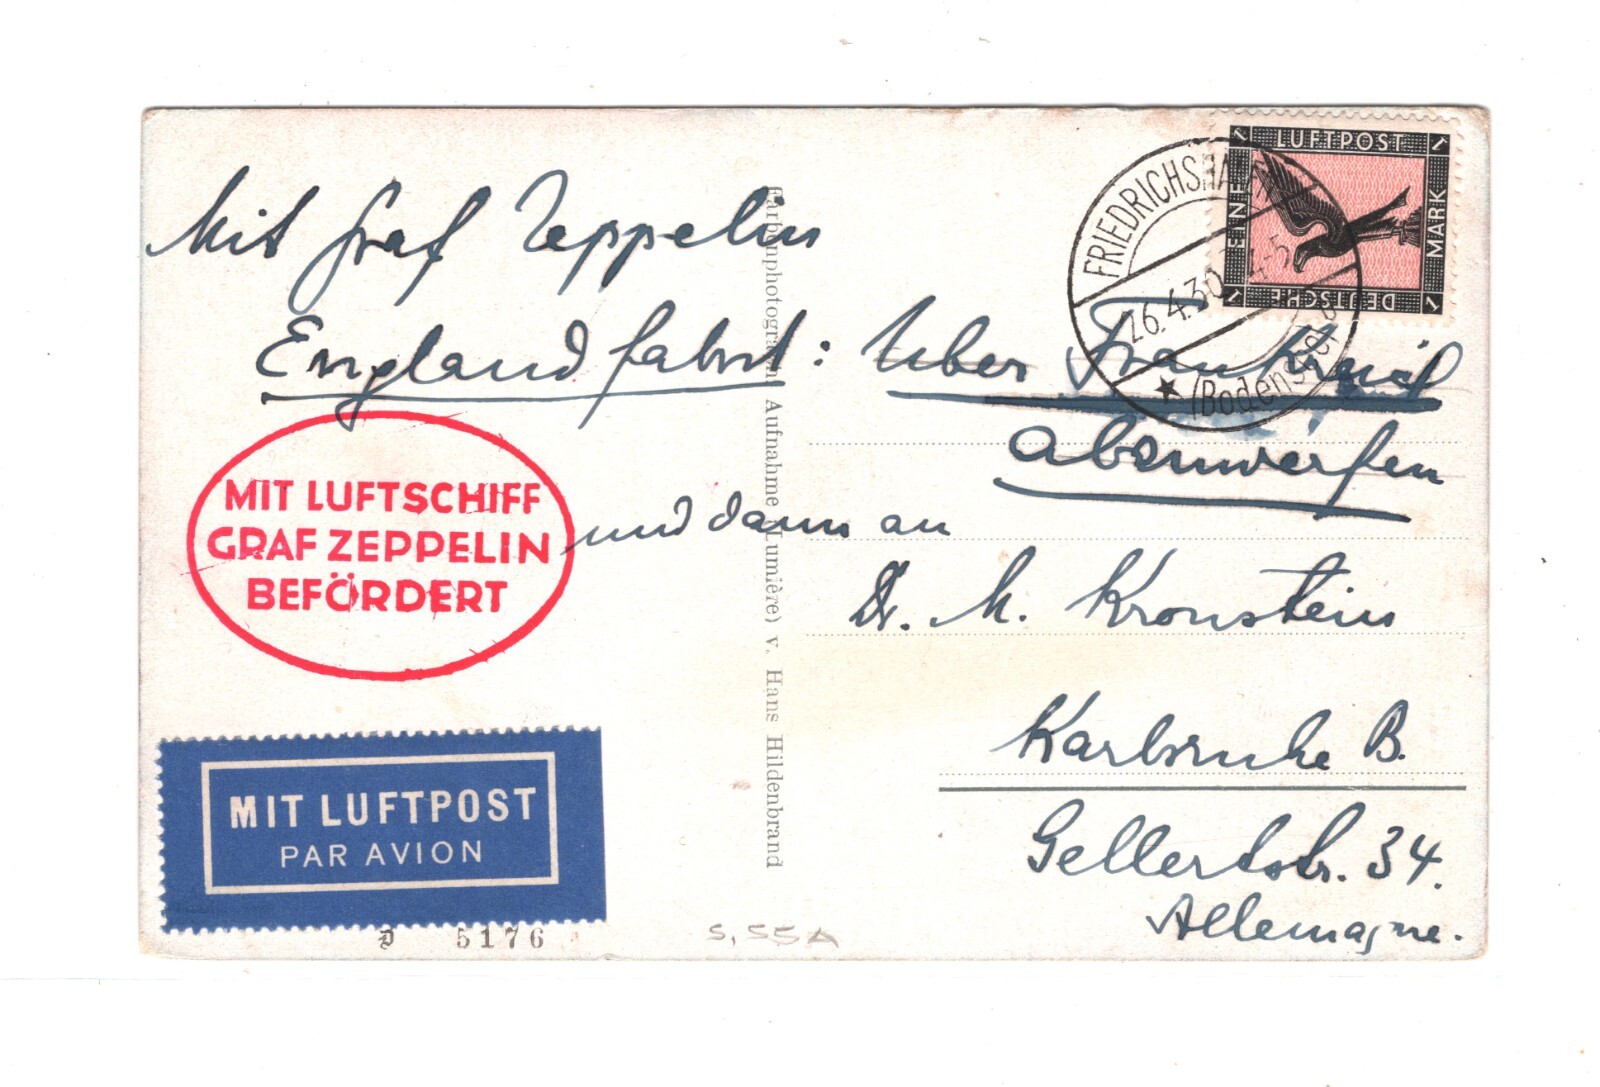 Mit Graf Zeppelin
Englandfahrt: Über Frankreich
abzuwerfen
und dann an
Dr. M. Kronstein
Karlsruhe B.
Gellertstr. 34.
Allemagne.
MIT LUFTSCHIFF
GRAF ZEPPELIN
BEFÖRDERT
MIT LUFTPOST
PAR AVION
D 5176
S, 55A
Aufnahme Lumière) v. Hans Hildenbrand
FRIEDRICHSHAFEN
26.4.30 4-5
(Bodensee)
LUFTPOST
EINE
MARK
DEUTSCHE
1
1
1
1